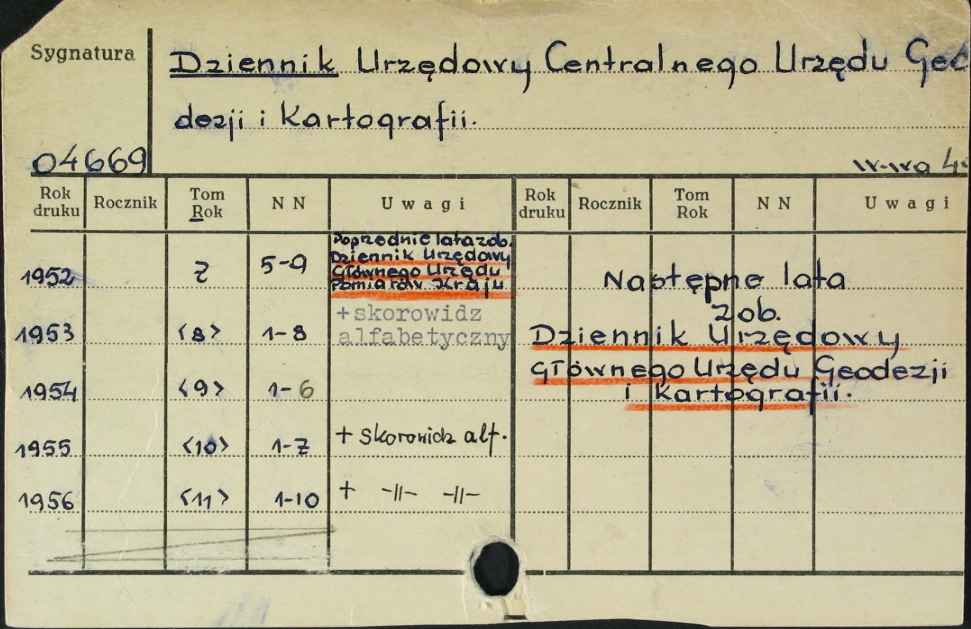 Sygnatura
Dziennik Urzędowy Centralnego Urzędu Geo
dezji i Kartografii.
04669
w-wa 4
Rok druku Rocznik Tom Rok N N Uwagi Rok druku Rocznik Tom Rok N N Uwagi
Poprzednie lata zob.
Dziennik Urzędowy
Głównego Urzędu
Pomiarów Kraju
1952 7 5-9
+skorowidz
alfabetyczny
1953 <8> 1-8
1954 <9> 1-6
1955 <10> 1-7 + skorowidz alf.
1956 <11> 1-10 + -||- -||-
Następne lata
zob.
Dziennik Urzędowy
Głównego Urzędu Geodezji
i Kartografii.